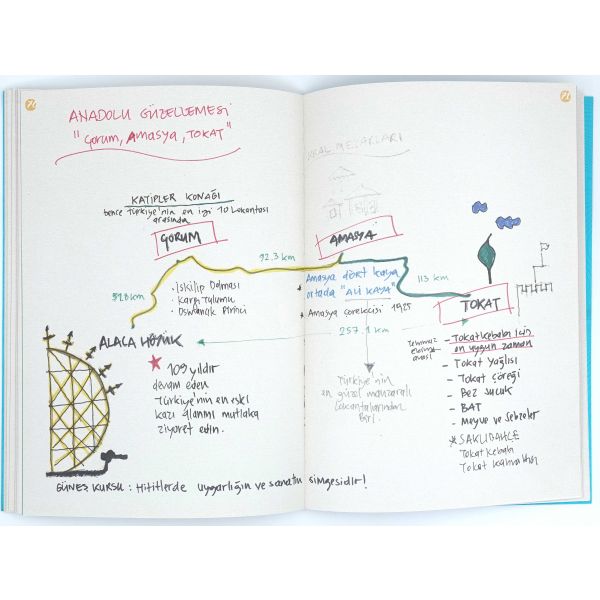 ANADOLU GÜZELLEMESİ
"Çorum, Amasya, TOKAT"
KATİPLER KONAĞI
bence Türkiye'nin en iyi 10 Lokantası
arasında
ÇORUM
92.3 km
52.8 km
• İskilip Dolması
• Kargı Tulumu
• Osmancık Pirinci
ALACA HÖYÜK
109 yıldır
devam eden
Türkiye'nin en eski
kazı alanını mutlaka
ziyaret edin.
GÜNEŞ KURSU : Hititlerde uygarlığın ve sanatın simgesidir!
KRAL MEZARLARI
AMASYA
Amasya dört kaya
ortada "ALİ KAYA"
Amasya çörekcisi 1925
257.1 km
Türkiye'nin
en güzel manzaralı
Lokantalarından
Biri.
113 km
TOKAT
Temmuz
ekim
arası
- Tokat Kebabı için
en uygun zaman
- Tokat Yağlısı
- Tokat Çöreği
- Bez Sucuk
- BAT
- Meyve ve Sebzeler
SAKLIBAHÇE
Tokat Kebabı
Tokat Kahvaltısı